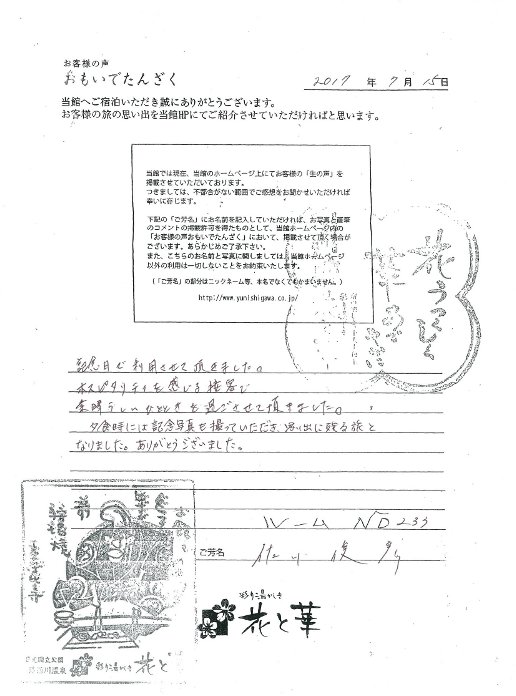 お客様の声
おもいでたんざく
2017 年 7 月 15 日
当館へご宿泊いただき誠にありがとうございます。
お客様の旅の思い出を当館HPにてご紹介させていただければと思います。
当館では現在、当館のホームページ上にてお客様の「生の声」を
掲載させていただいております。
つきましては、不都合がない範囲でご感想をお聞かせいただければ
幸いに存じます。
下記の「ご芳名」にお名前を記入していただければ、お写真と直筆
のコメントの掲載許可を得たものとして、当館ホームページ内の
「お客様の声おもいでたんざく」において、掲載させて頂く場合が
ございます。あらかじめご了承下さい。
また、こちらのお名前と写真に関しましては、当館ホームページ
以外の利用は一切しないことをお約束いたします。
(「ご芳名」の部分はニックネーム等、本名でなくてもかまいません。)
http://www.yunishigawa.co.jp/
記念日で利用させて頂きました。
ホスピタリティを感じる接客で
素晴らしいひとときを過ごさせて頂きました。
夕食時には記念写真も撮っていただき、思い出に残る旅と
なりました。ありがとうございました。
ND233
ご芳名
花と華
花と